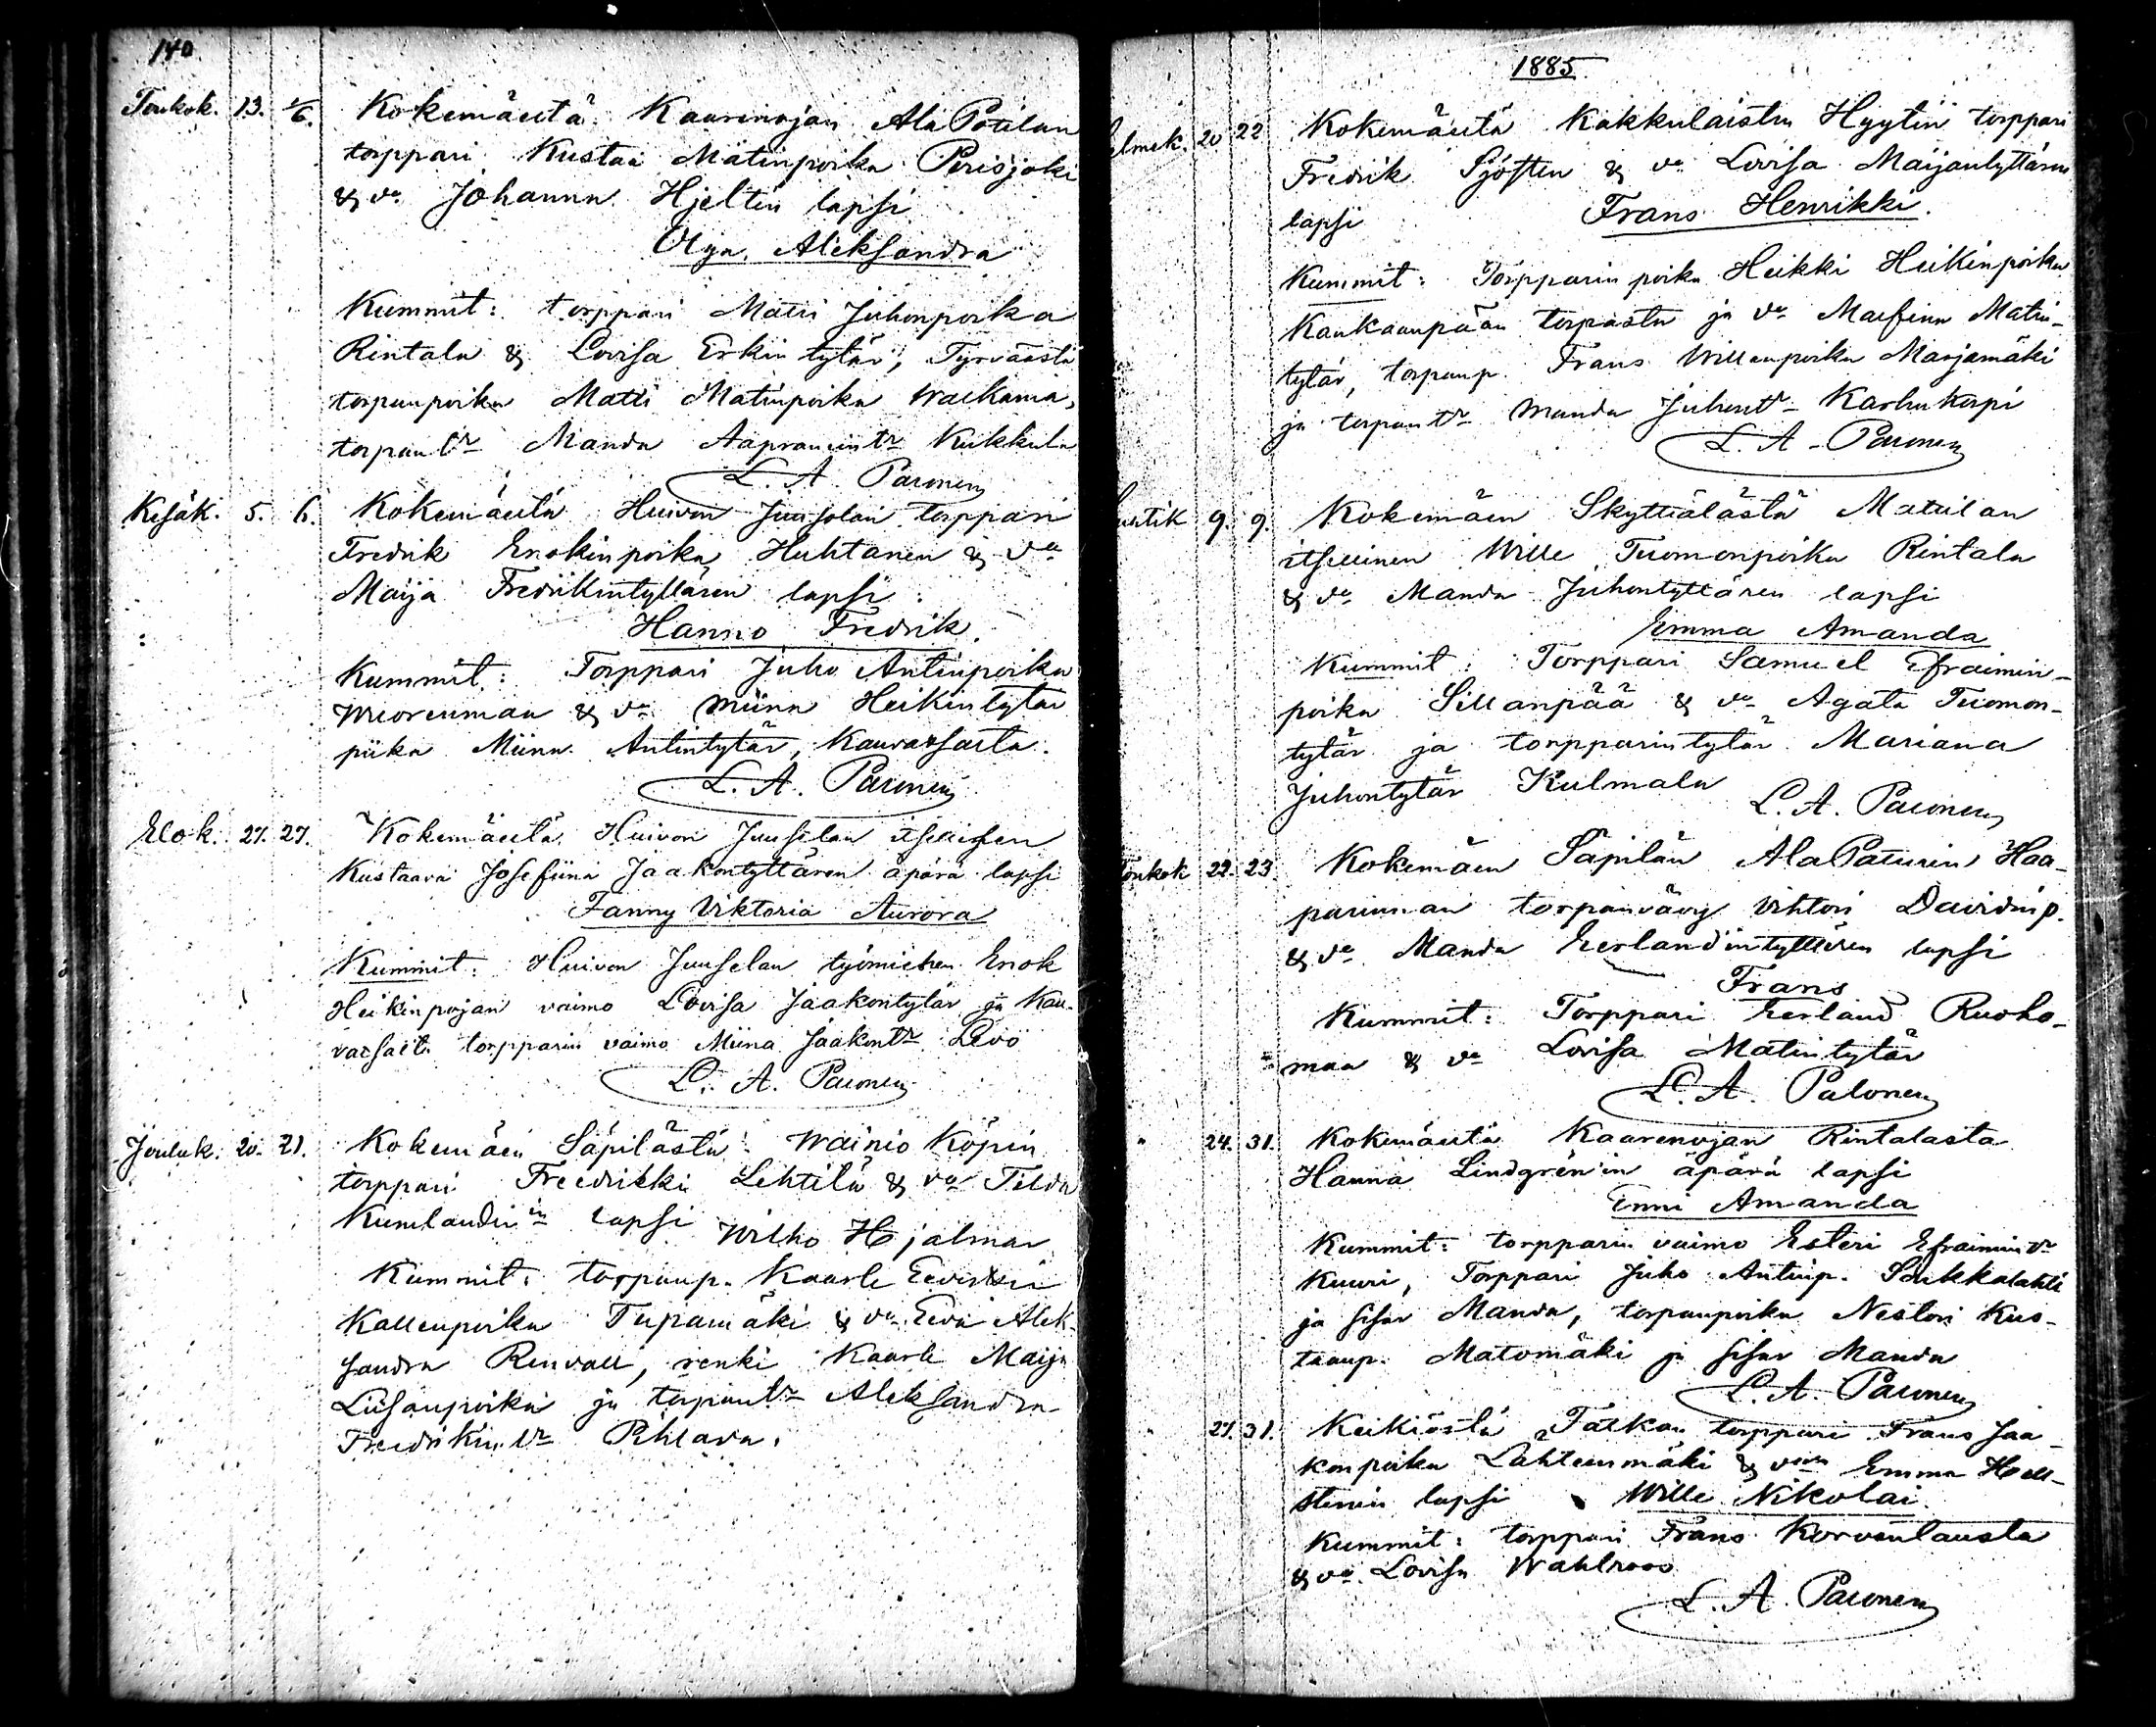 140
Toukok. 13. 1/6. Kokemäeltä Kaarenojan Ala Potilan
torppari Kustaa Matinpoika Peräjoki
& vo Johanna Hjeltin lapsi
Olga Aleksandra
Kummit: torppari Matti Juhonpoika
Rintala & Lovisa Erkin tytär, Tyrväästä
torpanpoika Matti Matinpoika Waekama,
torpantr Manda Aapramintr Kukkula
L. A. Palonen
Kesäk. 5. 6. Kokemäeltä Huivon Juuselan torppari
Fredrik Enokinpoika Huhtanen & vo
Maija Fredrikintyttären lapsi:
Hanno Fredrik.
Kummit: Torppari Juho Antinpoika
Wuorenmaa & vo Miina Heikintytär
piika Miina Antintytär, Kauvatsalta.
L. A. Palonen
Elok. 27. 27. Kokemäeltä Huivon Juuselan itsellisen
Kustaava Josefiina Jaakontyttären äpärä lapsi
Fanny Viktoria Aurora
Kummit: Huivon Juuselan työmiehen Enok
Heikinpojan vaimo Lovisa Jaakontytär ja Kau-
vatsalta torpparin vaimo Miina Jaakontr Levo
L. A. Palonen
Jouluk. 20. 21. Kokemäen Säpilästä Wainio Köpin
torppari Freedrikki Lehtilä & vo Tilda
Kumlandin lapsi Wilho Hjalmar
Kummit: torpanp. Kaarle Eevertti
Kallenpoika Tupamäki & vo Eeva Alek-
sandra Renvall, renki Kaarle Maija
Liisanpoika ja torpantr Aleksandra
Freedrikintr Pihlava.
1885
Helmik. 20 22 Kokemäeltä Kakkulaisten Hyytin torppari
Fredrik Sjösten & vo Lovisa Maijantyttären
lapsi Frans Henrikki.
Kummit: Torpparin poika Heikki Heikinpoika
Kankaanpään torpasta ja vo Matin-
tytär, torpanp. Frans Willenpoika Marjamäki
ja torpantr Manda Juhontr Karhukorpi
L. A. Palonen
9. 9. Kokemäen Skyttälästä Mattilan
itsellinen Wille Tuomonpoika Rintala
& vo Manda Juhontyttären lapsi
Emma Amanda
Kummit: Torppari Samuel Efraimin-
poika Sillanpää & vo Agata Tuomon-
tytär ja torpparintytär Mariana
Juhontytär Kulmala
L. A. Palonen
Toukok 22. 23. Kokemäen Säpilän Ala Paturin Haa-
torpanvävy Vihtori Davidinp.
& vo Manda Eerlandintyttären lapsi
Frans
Kummit: Torppari Eerland Ruoho-
maa & vo Lovisa Matintytär
L. A. Palonen
" 24. 31. Kokemäeltä Kaarenojan Rintalasta
Hanna Lindgrén'in äpärä lapsi
Enni Amanda
Kummit: torpparin vaimo Esteri Efraimintr
Kuuri, Torppari Juho Antinp. Sorkkalahti
ja sisar Manda, torpanpoika Nestori Kus-
taanp. Matomäki ja sisar Manda
L. A. Palonen
27. 31. Keikiöstä Talkan torppari Frans Jaa-
konpoika Lähteenmäki & vaim Emma Hell-
stenin lapsi Wille Nikolai
Kummit: torppari Frans Korvenlausta
& vo Lovisa Wahlroos
L. A. Palonen